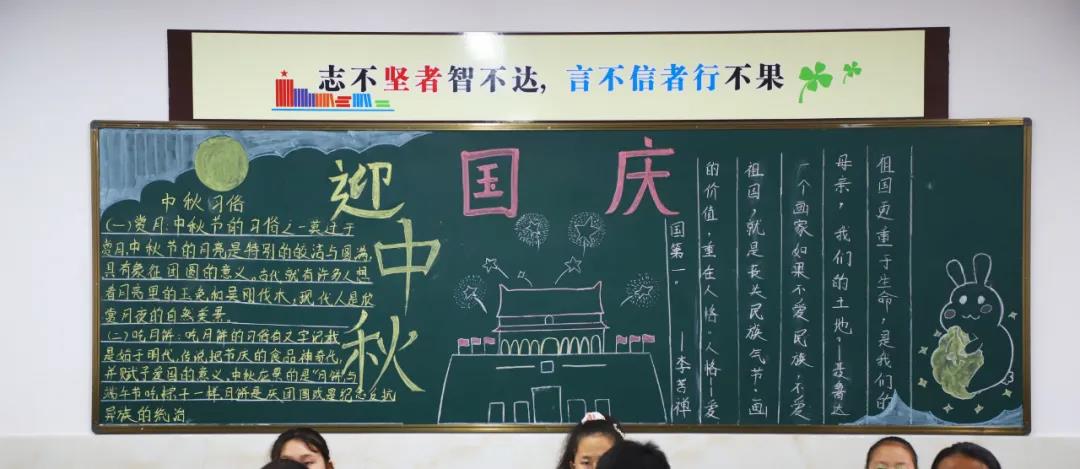 志不坚者智不达，言不信者行不果
迎中秋
国庆
中秋习俗
(一)赏月:中秋节的习俗之一莫过于
赏月,中秋节的月亮是特别的皎洁与圆满,
具有象征团圆的意义。古代就有许多人想
着月亮里的玉兔和吴刚伐木,现代人是欣
赏月夜的自然美景。
(二)吃月饼:吃月饼的习俗有文字记载
是始于明代,传说把节庆的食品神奇化,
并赋予爱国的意义,中秋应景的是"月饼"与
端午节吃粽子一样月饼是庆团圆或是纪念反抗
异族的统治.
祖国更重于生命,是我们的
母亲,我们的土地。—聂鲁达
一个画家如果不爱民族,不爱
祖国,就是丧失民族气节。画
的价值,重在人格。人格—爱
国第一。——李苦禅